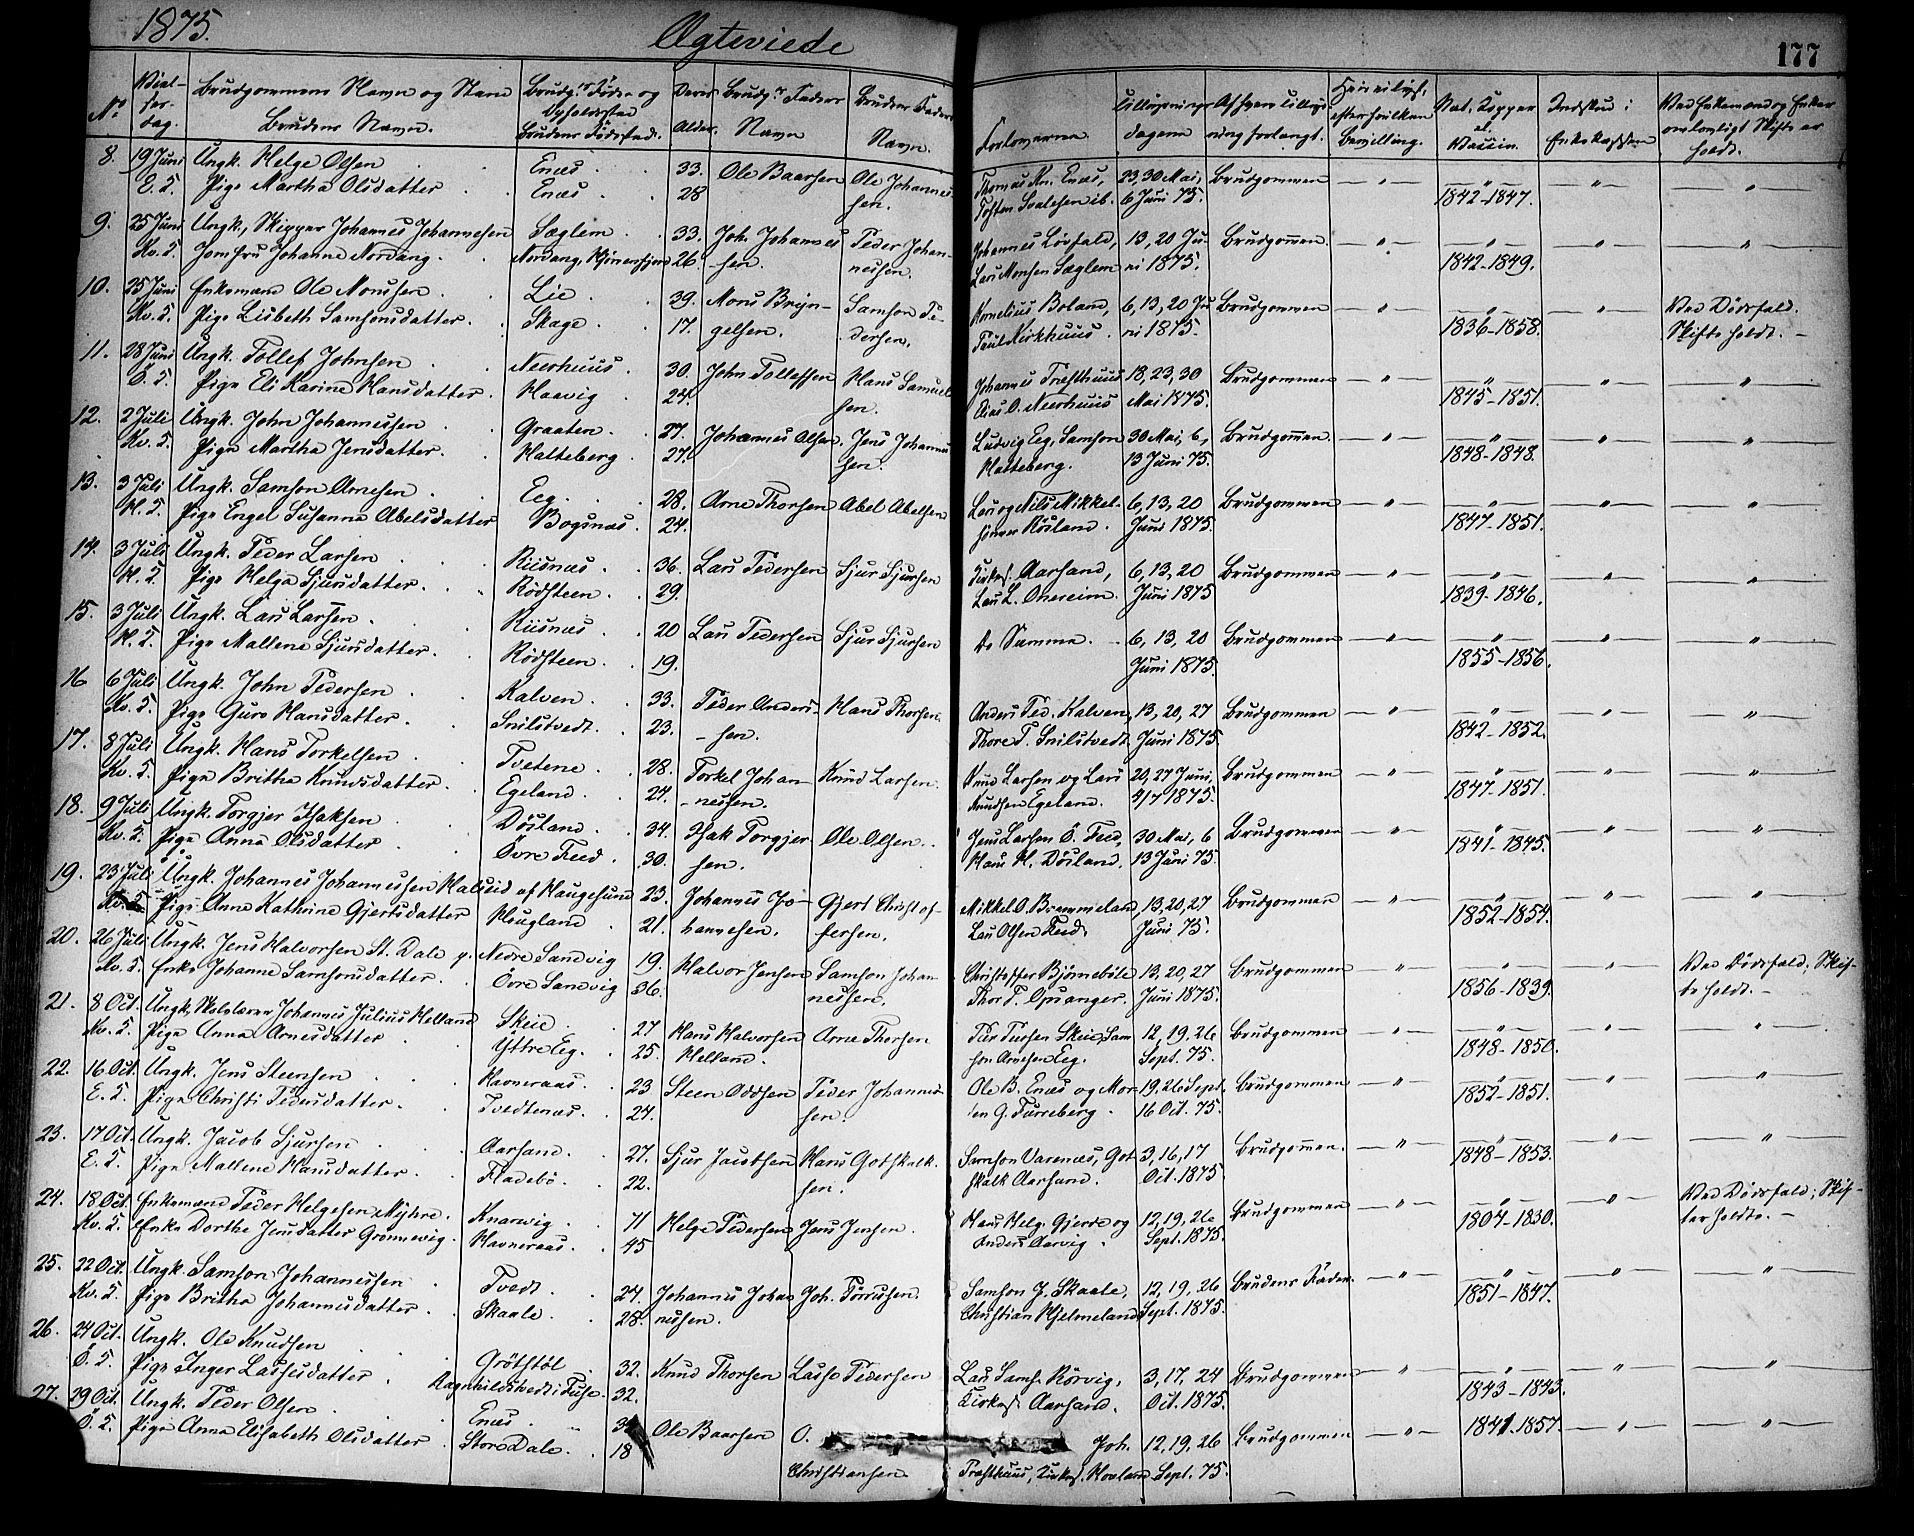 1875.
Ægteviede
177
No
Brudgommens Navn og Stand
Brudens Navn.
Alder.
Navn
Navn.
Forloverne
dagene
Bevilling.
Vaccin.
holdt.
8. 19 Juni Ungk. Helge Olsen Enæs 33. Ole Baarsen Ole Johannes- Thomas Kn. Enæs, 23, 30 Mai, Brudgommen
E. K. Pige Martha Olsdatter Enæs 28 sen. 6 Juni 75. 1842-1847.
9. 25 Juni Ungk., Skipper Johannes Johannesen Sæglem 33. Joh. Johannes Peder Johan- Johannes Løvfald, 13, 20 Ju- Brudgommen.
Kv. K. Jomfru Johanne Nordang. 26. -sen. nesen. Lars Monsen Sæglem ni 1875. 1842-1849.
10. 25 Juni Enkemand Ole Monsen Lie 39. Mons Bryn- Samson Pe- Kornelius Boland, 6, 13, 20 Ju Brudgommen Ved Dødsfald.
Kv. K. Pige Lisbeth Samsonsdatter. Skage 17. gelsen. dersen. Paul Kirkhuus. ni 1875. 1836-1858. Skifte holdt.
11. 28 Juni Ungk. Tollef Johnsen Neerhuus 30. John Tollefsen Hans Samuel Johannes Træsthuus 18, 23, 30 Brudgommen
Ö. K. Pige Eli Karine Hansdatter. Haavig 24. sen. Elias O. Neerhuus Mai 1875. 1845-1851.
12. 2 Juli Ungk. John Johannessen Graaten 27. Johannes Olsen. Jens Johannes Ludvig Eeg, Samson 30 Mai, 6, Brudgommen.
Kv. K. Pige Martha Jensdatter. Halteberg 27. sen. Halteberg. 13 Juni 75. 1848-1848.
13. 3 Juli Ungk. Samson Arnesen Eeg. 28. Arne Thorsen Abel Abelsen Lars og Nils Mikkel- 6, 13, 20 Brudgommen
H. K. Pige Engel Susanna Abelsdatter Bogsnæs. 24. Juni 1875. 1847-1851.
14. 3 Juli Ungk. Peder Larsen Riisnæs. 36. Lars Pedersen Sjur Sjursen Kirkes. Aarsand, 6, 13, 20 Brudgommen
H. K. Pige Helga Sjursdatter. Rödsteen. 29. Lars L. Onereim. Juni 1875 1839-1846.
15. 3 Juli Ungk. Lars Larsen. Riisnæs. 20 Lars Pedersen Sjur Sjursen De Samme. 6, 13, 20 Brudgommen
H. K. Pige Mallene Sjursdatter. Rödsteen. 19. Juni 1875 1855-1856.
16 6 Juli Ungk. John Pedersen Kalven. 33. Peder Anders- Hans Thorsen. Anders Ped. Kalven, 13, 20, 27 Brudgommen
Kv. K. Pige Guro Hansdatter. Snilstvedt. 23. -sen. Thore T. Snilstvedt. Juni 1875. 1842-1852.
17. 8 Juli Ungk. Hans Torkelsen Tvetene. 28. Torkel Johan Knud Larsen. Knud Larsen og Lars 20, 27 Juni, Brudgommen
Kv. K. Pige Britha Knudsdatter. Egeland. 24. -nesen. Knudsen Egeland. 4/7 1875. 1847-1851.
18. 9 Juli Ungk. Torgjer Isaksen Døsland. 34. Isak Torgjer Ole Olsen. Jens Larsen Ö. Feed, 30 Mai, 6 Brudgommen
Kv. K. Pige Anna Olsdatter Övre Feed. 30. sen. Hans H. Døsland. 13 Juni 75. 1841-1845.
19. 23 Juli Ungk. Johannes Johannessen Halseid af Haugesund 23. Johannes Jo- Gjert Christof- Mikkel O. Bremmeland, 13, 20, 27 Brudgommen
Pige Anne Kathrine Gjertsdatter Haugland 21. hannesen. fersen. Lars Olsen Feed. Juni 75. 1852-1854.
20. 26 Juli Ungk. Jens Halvorsen St. Dale p. Nedre Sandvig 19. Halvor Jensen Samson Johan Christoffer Björnebøle 13, 20, 27 Brudgommen Ved Dødsfald. Skif-
Kv. K. Enke Johanne Samsonsdatter. Övre Sandvig 36. nesen. Thor T. Opsanger. Juni 1875. 1856-1839. te holdt.
21. 8 Oct. Ungk. Skolelærer Johannes Julius Helland Skeie 27 Hans Halvorsen Arne Thorsen 12, 19, 26 Brudgommen
Kv. K. Pige Anna Arnesdatter Yttre Eeg. 25. Helland. Arnesen Eeg. Sept. 75. 1848-1850.
22. 16 Oct. Ungk. Jens Steensen Havneraas. 23 Steen Oddsen Peder Johannes- Ole B. Enæs og Mor- 19, 26 Sept. Brudgommen
E. K. Pige Christi Pedersdatter. Tvedtenæs. 24. sen. ten G. Furreberg. 16 Oct. 75. 1852-1851.
23. 17 Oct. Ungk. Jacob Sjursen Aarsand. 27. Sjur Jacobsen Hans Gotskalk. Samson Varenæs, Got 3, 16, 17 Brudgommen.
E. K. Pige Mallene Hansdatter. Fladebö. 22. sen. skalk Aarsand. Oct. 1875 1848-1853.
24. 18 Oct. Enkemand Peder Helgesen Myhre. Knarvig. 71 Helge Pedersen Jens Jensen. Hans Helg. Gjerde og 12, 19, 26 Brudgommen Ved Dødsfald; Skif-
Kv. K. Enke Dorthe Jensdatter Grønnevig. Havneraas. 45 Anders Aarvig. Sept. 1875. 1804-1830. te holdt.
25. 22 Oct. Ungk. Samson Johannessen Tvedt. 24. Johannes Johan Joh. Torrisen. Samson J. Skaale, 12, 19, 26 Brudens Fader.
Kv. K. Pige Britha Johannesdatter. Skaale. 28. nesen. Christian Hjelmeland Sept. 1875. 1851-1847.
26. 24 Oct. Ungk. Ole Knudsen Grötstöl 32. Knud Thorsen Lasse Pedersen Lars Sams. Rörvig, 3, 17, 24 Brudgommen
Ö. K. Pige Inger Lassesdatter. Ragnhildstvedt i Fuse. 32. Kirkes. Aarsand. Oct. 1875. 1843-1843.
27. 29 Oct. Ungk. Peder Olsen. Enæs. Ole Baarsen O. Joh. 12, 19, 26 Brudgommen 1841-1857.
Ö. K. Pige Anna Elisabeth Olsdatter. Store Dale. 18 Christiansen. Træsthuus, Kirkes. Hovland Sept. 75.